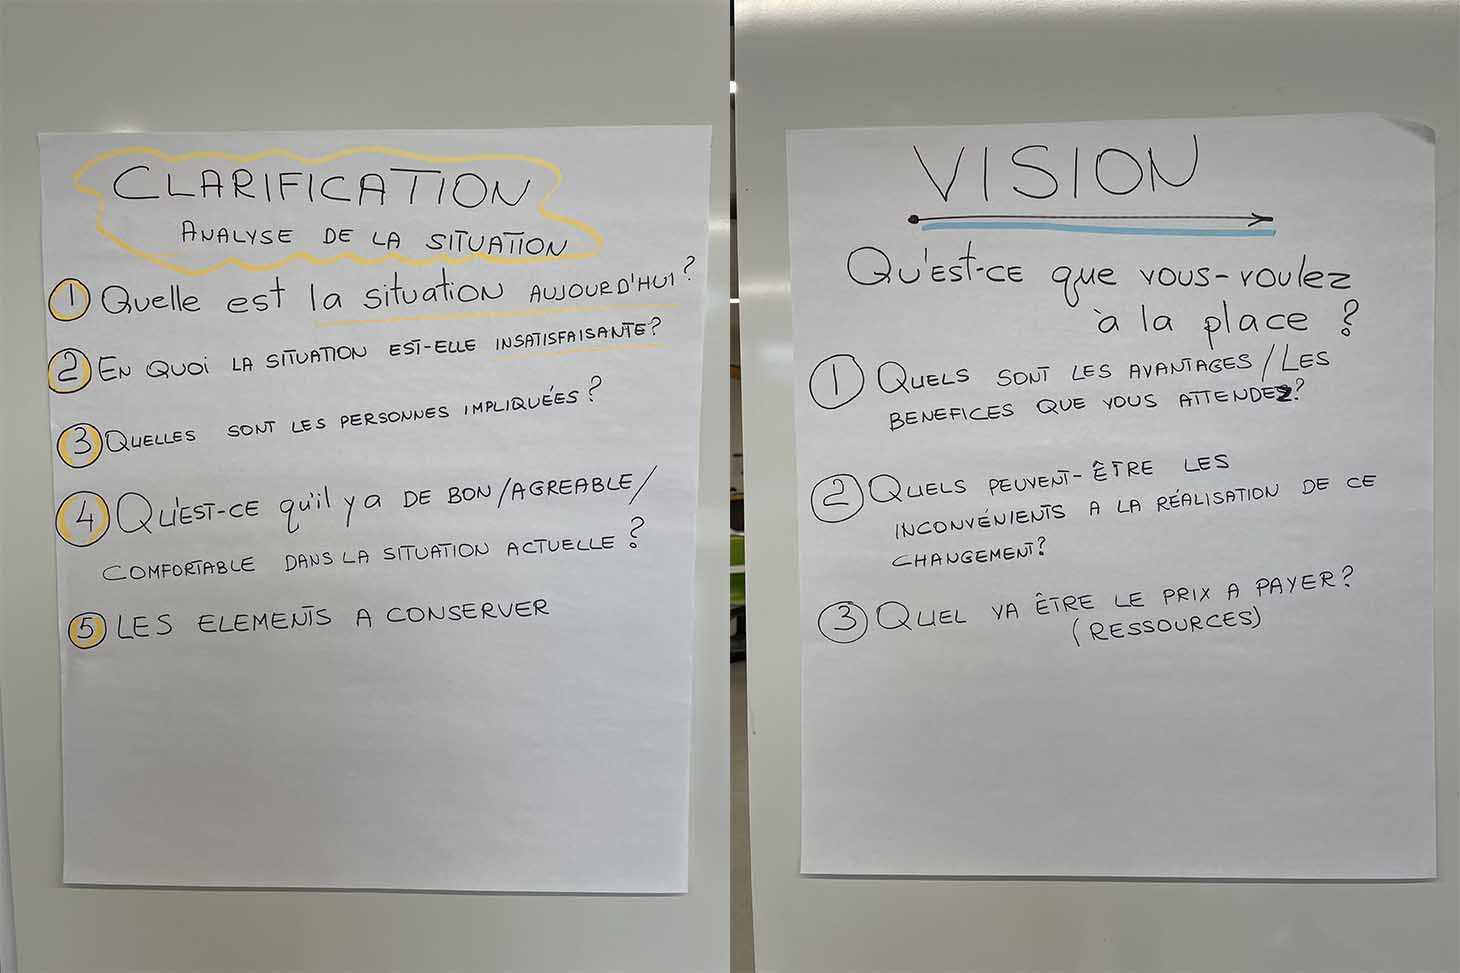 CLARIFICATION
ANALYSE DE LA SITUATION
1 Quelle est la situation AUJOURD'HUI ?
2 EN QUOI LA SITUATION EST-ELLE INSATISFAISANTE ?
3 QUELLES SONT LES PERSONNES IMPLIQUÉES ?
4 QU'EST-CE qu'il y a DE BON/AGREABLE/
COMFORTABLE DANS LA SITUATION ACTUELLE ?
5 LES ELEMENTS A CONSERVER
VISION
QU'EST-CE que vous-voulez
à la place ?
1 QUELS SONT LES AVANTAGES/LES
BENEFICES QUE VOUS ATTENDEZ ?
2 QUELS PEUVENT-ÊTRE LES
INCONVÉNIENTS A LA RÉALISATION DE CE
CHANGEMENT ?
3 QUEL VA ÊTRE LE PRIX A PAYER ?
(RESSOURCES)